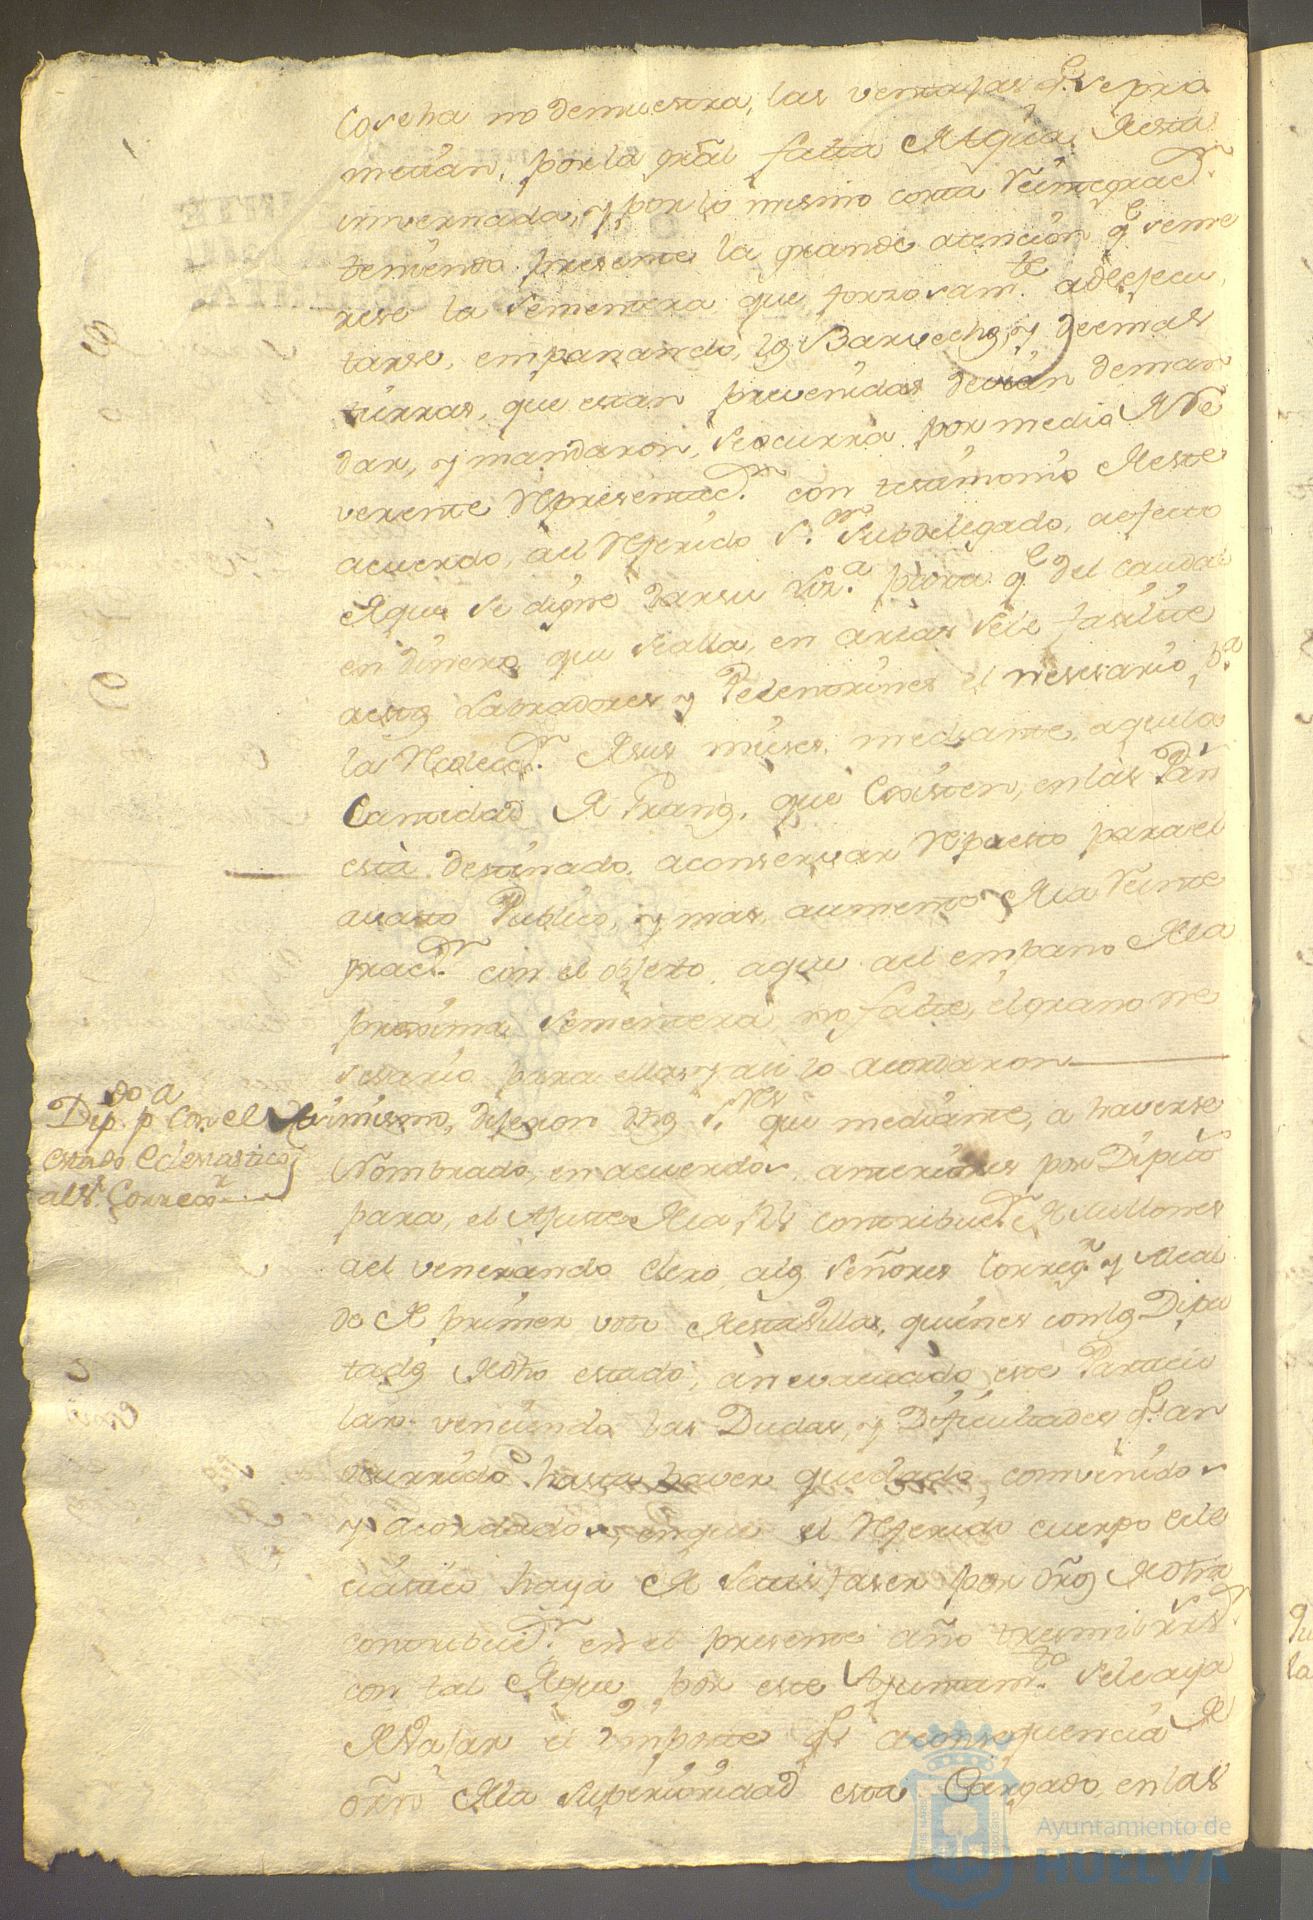 Cosecha no demuestra, las ventajas q.e se pro
metian, por la gral falta de Agua de esta
invernada, y por lo mismo corta Reintegrac.n
teniendo presente la grande atencion q.e se me
rese la sementera que forzosam.te a de ejecu
tarse, empanando, los Barvechos, y demas
tierras, que estan prevenidas devian de man
dar, y mandaron, se ocurra por medio de Re
verente Representac.n con testimonio de este
acuerdo, al Referido S.or Subdelegado, a efecto
de que se digne dar su Liz.a para q.e del caudal
en dinero, que se alla, en arcas se le fasilite
a estos Labradores, y Pelentrines el nesesario, p.a
la Recolecc.n de sus mieses, mediante, a que la
Cantidad de Granos, que Existen, en las Pan
está destinado, a conservar Repuesto para el
avasto Publico, y mas aumento de la Reinte
grac.n con el objeto, a que al empano de la
proxima sementera, no falte, el grano ne
sesario para ella, y asi lo acordaron
Dip.do p.a Con el
estado Eclesiastico
al S.r Corregor
Asimismo, dijeron dhos S.res que mediante, a haverse
Nombrado, en acuerdos, anteriores por Diputo
para, el Ajuste de la contribuc.n de Millones
del venerando Clero, a los Señores Correg.r y Alcal
de de primer voto de esta Villa, quienes con los Dipu
tados de dho estado, an evacuado, este Particu
lar venciendo las Dudas, y Dificultades q.e an
ocurrido hasta haver quedado, convenidos
y acordados, en que el Referido cuerpo Ecle
ciastico haya de satisfaser por dros de dha
contribuc.n en el presente año tres mil rr.s
con tal de que por este Ayuntam.to se le aya
de Vajar el importe q.e a consequencia de
orn de la Superioridad esta Cargado, en las
Ayuntamiento de
HUELVA